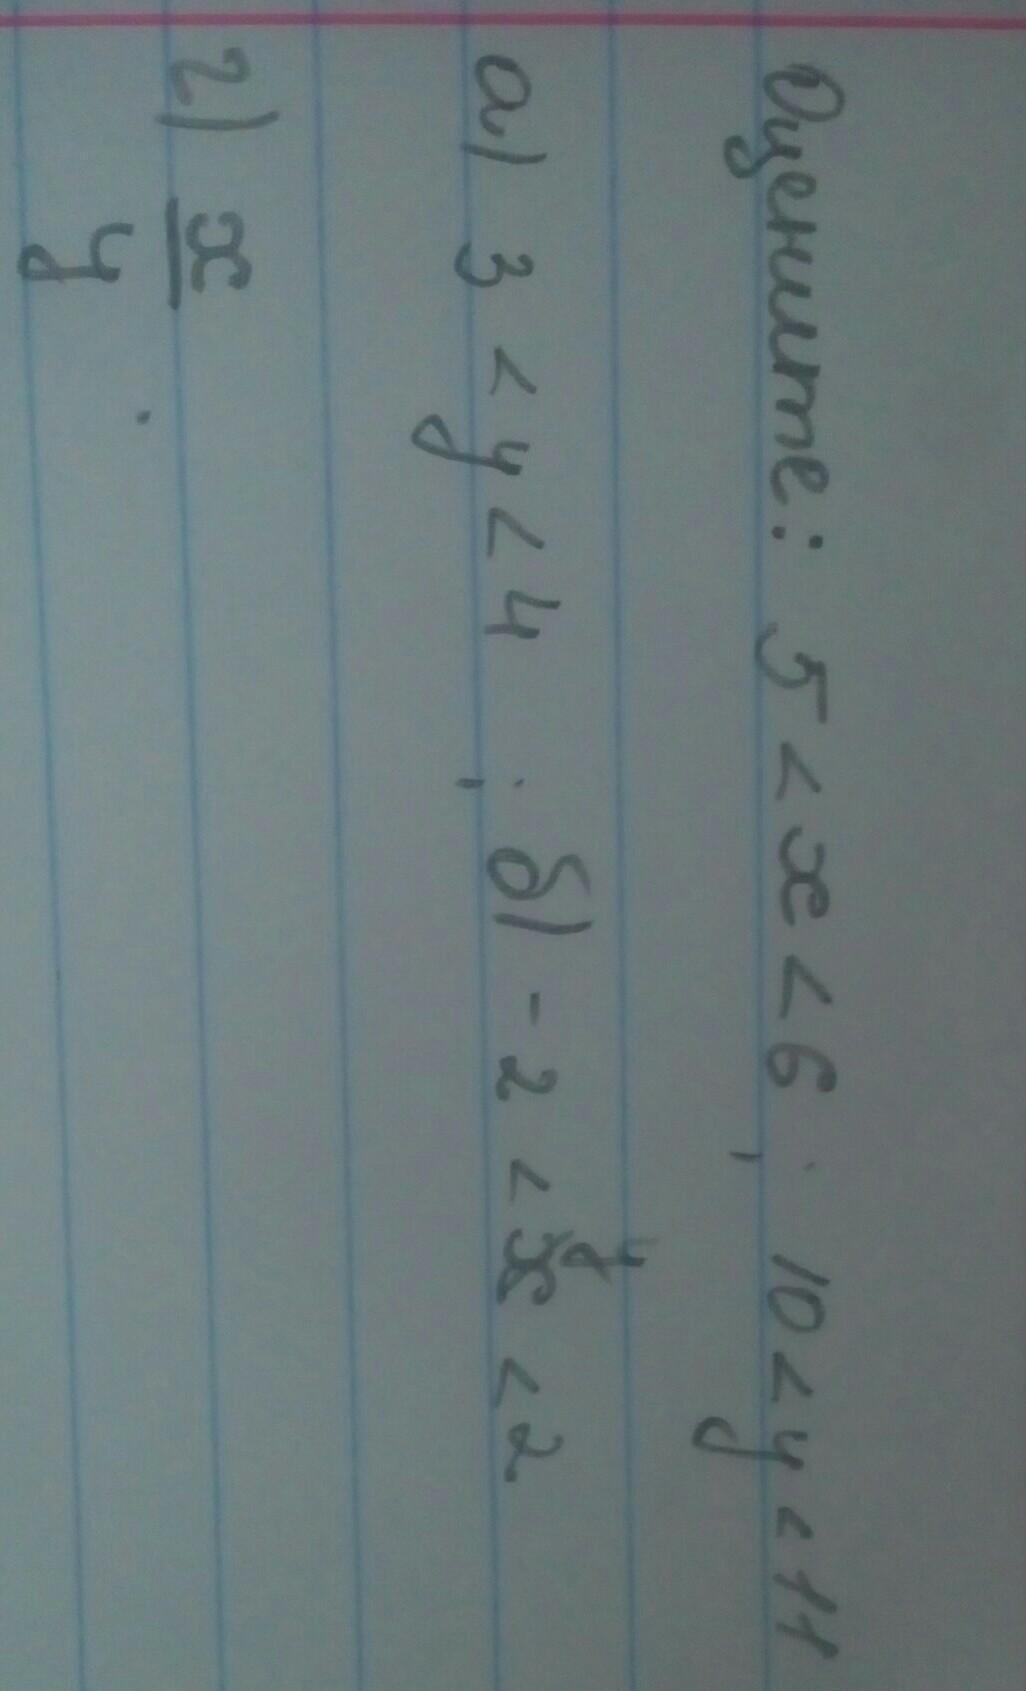 Оцените: 5 < x < 6 ; 10 < y < 11
а) 3 < y < 4 ; б) - 2 < x y < 2
г) x
y .